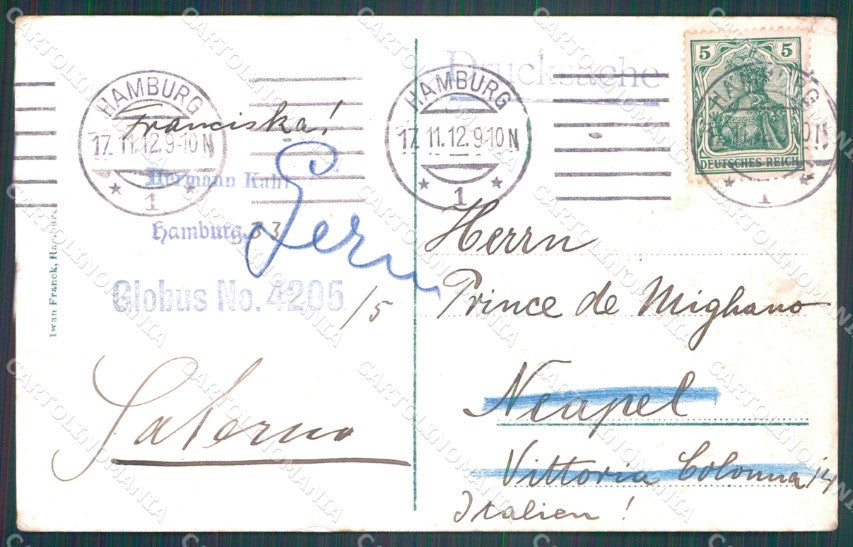 Drucksache
5 5
DEUTSCHES REICH
HAMBURG
17.11.12.9-10N
1
HAMBURG
17.11.12.9-10N
1
Franciska!
Hermann Kahl
Hamburg. 33
Globus No. 4205 /5
Salerno
Herrn
Prince de Mighano
Neapel
Vittoria Colonna 14
Italien!
Iwan Franck, Hamburg
CARTOLINOMANIA